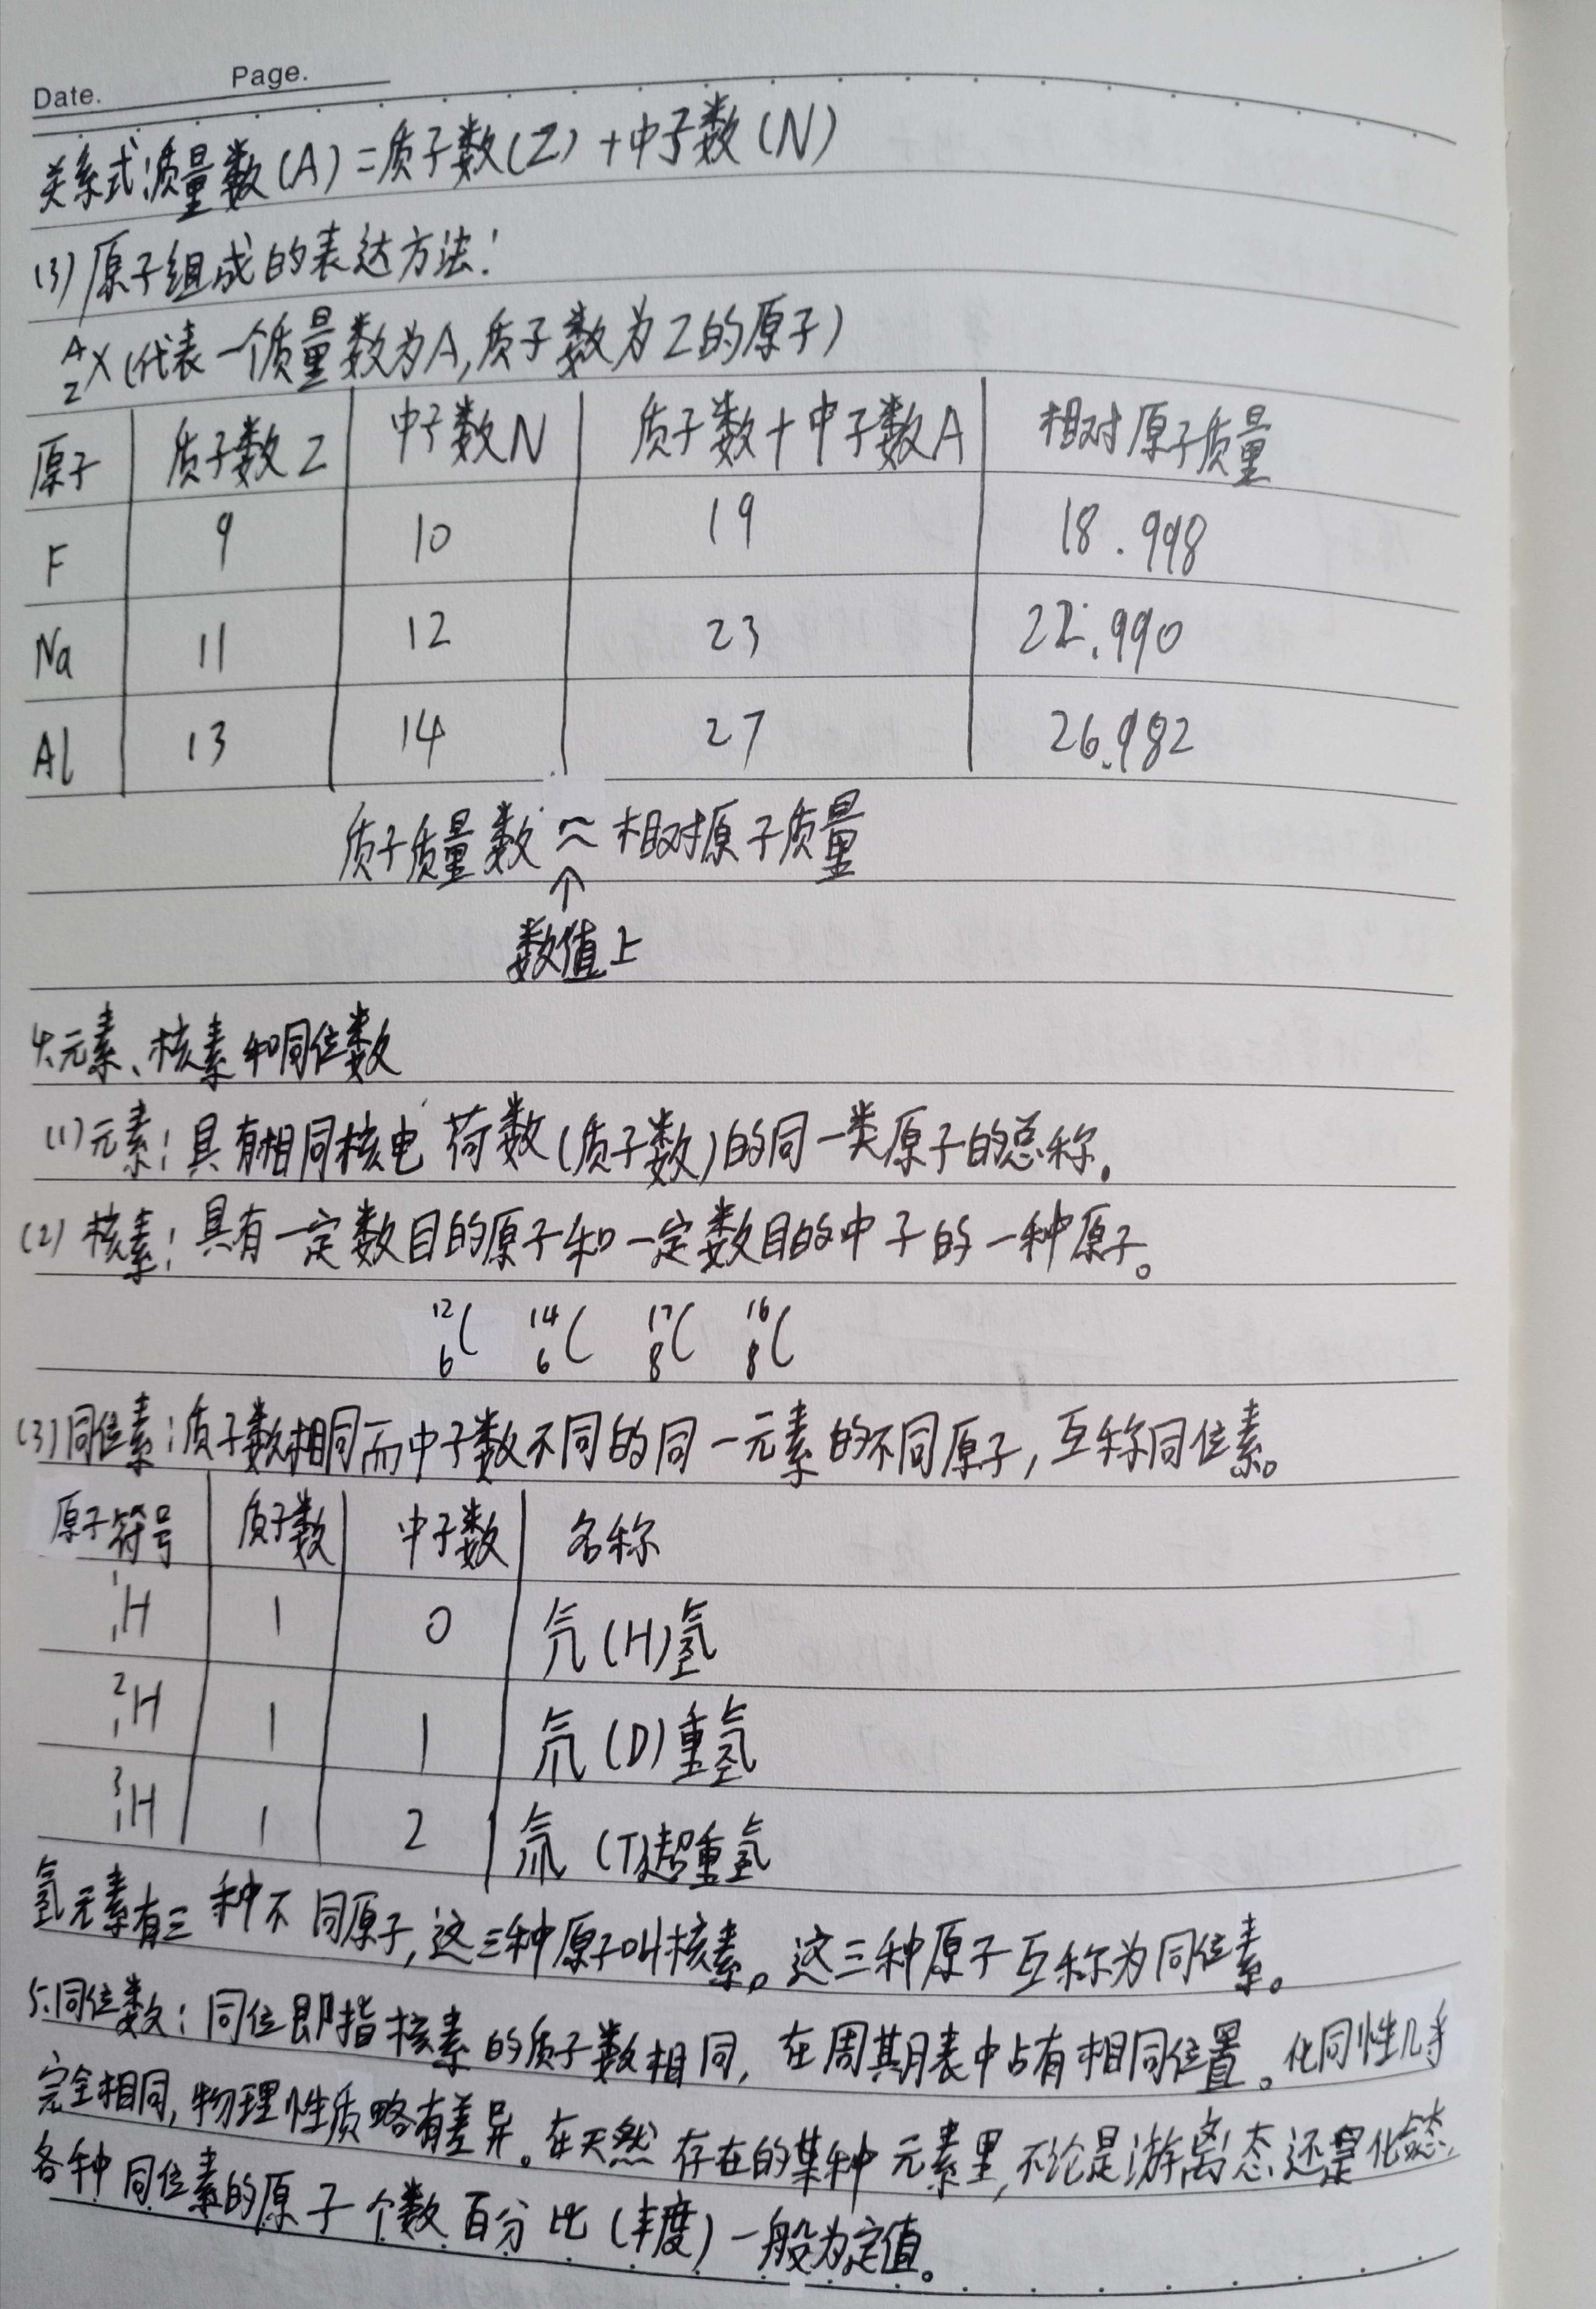 Date. Page.
关系式:质量数(A)=质子数(Z)+中子数(N)
(3)原子组成的表达方法:
A Z X(代表一个质量数为A,质子数为Z的原子)
原子 质子数Z 中子数N 质子数+中子数A 相对原子质量
F 9 10 19 18.998
Na 11 12 23 22.990
Al 13 14 27 26.982
质子质量数≈相对原子质量
↑
数值上
4.元素、核素和同位数
(1)元素:具有相同核电荷数(质子数)的同一类原子的总称。
(2)核素:具有一定数目的原子和一定数目的中子的一种原子。
12 6 C 14 6 C 17 8 C 16 8 C
(3)同位素:质子数相同而中子数不同的同一元素的不同原子,互称同位素。
原子符号 质子数 中子数 名称
1 1 H 1 0 氕(H)氢
2 1 H 1 1 氘(D)重氢
3 1 H 1 2 氚(T)超重氢
氢元素有三种不同原子,这三种原子叫核素。这三种原子互称为同位素。
5.同位数:同位即指核素的质子数相同,在周期表中占有相同位置。化同性几乎
完全相同,物理性质略有差异。在天然存在的某种元素里,不论是游离态还是化态,
各种同位素的原子个数百分比(丰度)一般为定值。